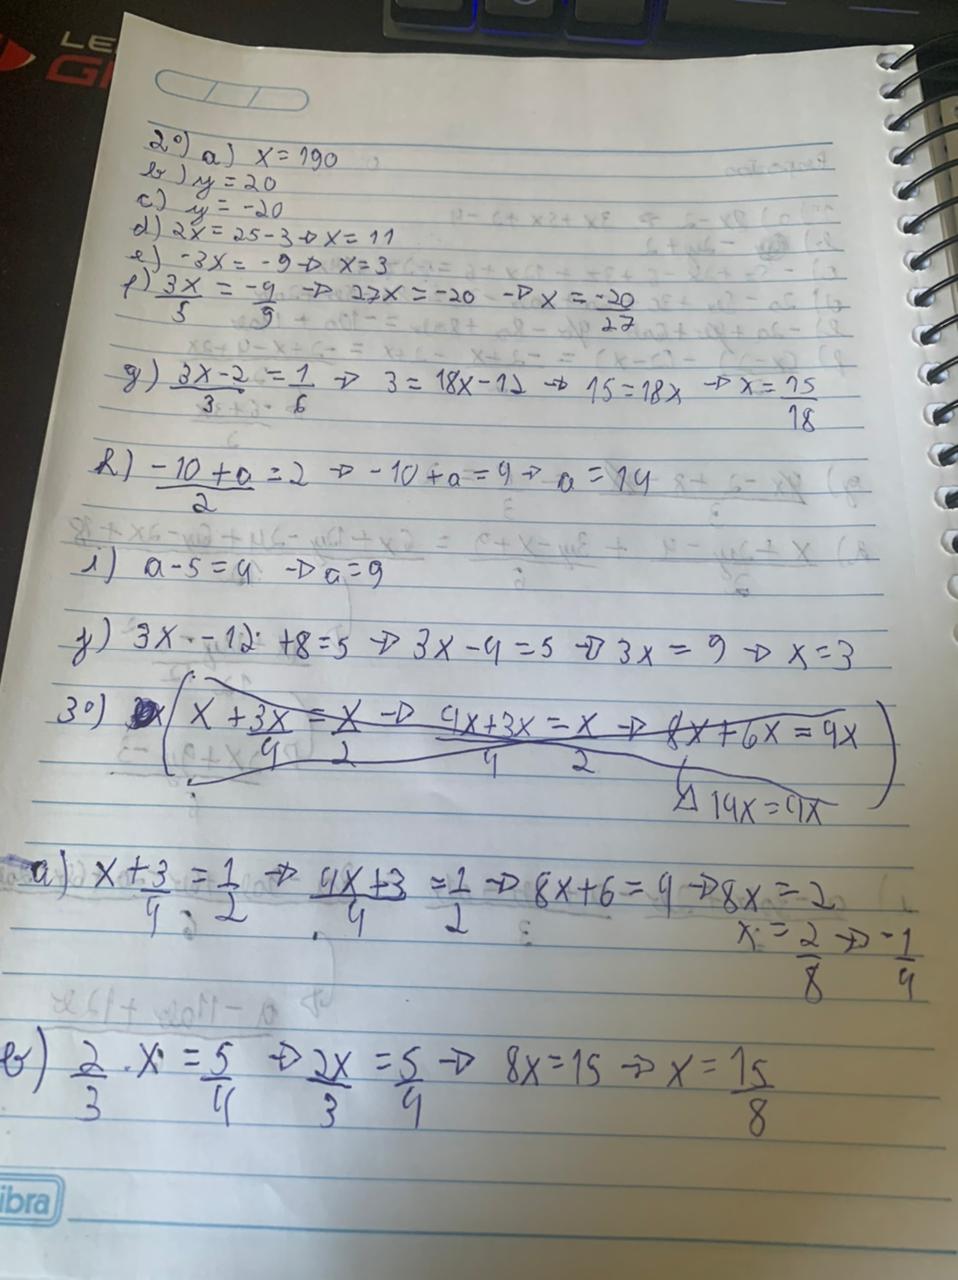 2º) a) x = 190
b) y = 20
c) y = -20
d) 2x = 25-3 → x = 11
e) -3x = -9 → x = 3
f) 3x/5 = -4/9 → 27x = -20 → x = -20/27
g) 3x-2/3 = 1/6 → 3 = 18x-12 → 15 = 18x → x = 15/18
h) -10+a/2 = 2 → -10+a = 4 → a = 14
i) a-5 = 4 → a = 9
j) 3x - 12 + 8 = 5 → 3x - 4 = 5 → 3x = 9 → x = 3
3º) (x + 3x/4 = x/2 → 4x+3x/4 = x/2 → 8x+6x = 4x)
→ 14x = 4x
a) x + 3/4 = 1/2 → 4x+3/4 = 1/2 → 8x+6 = 4 → 8x = -2
x = 2/8 → -1/4
b) 2/3 . x = 5/4 → 2x/3 = 5/4 → 8x = 15 → x = 15/8
ibra